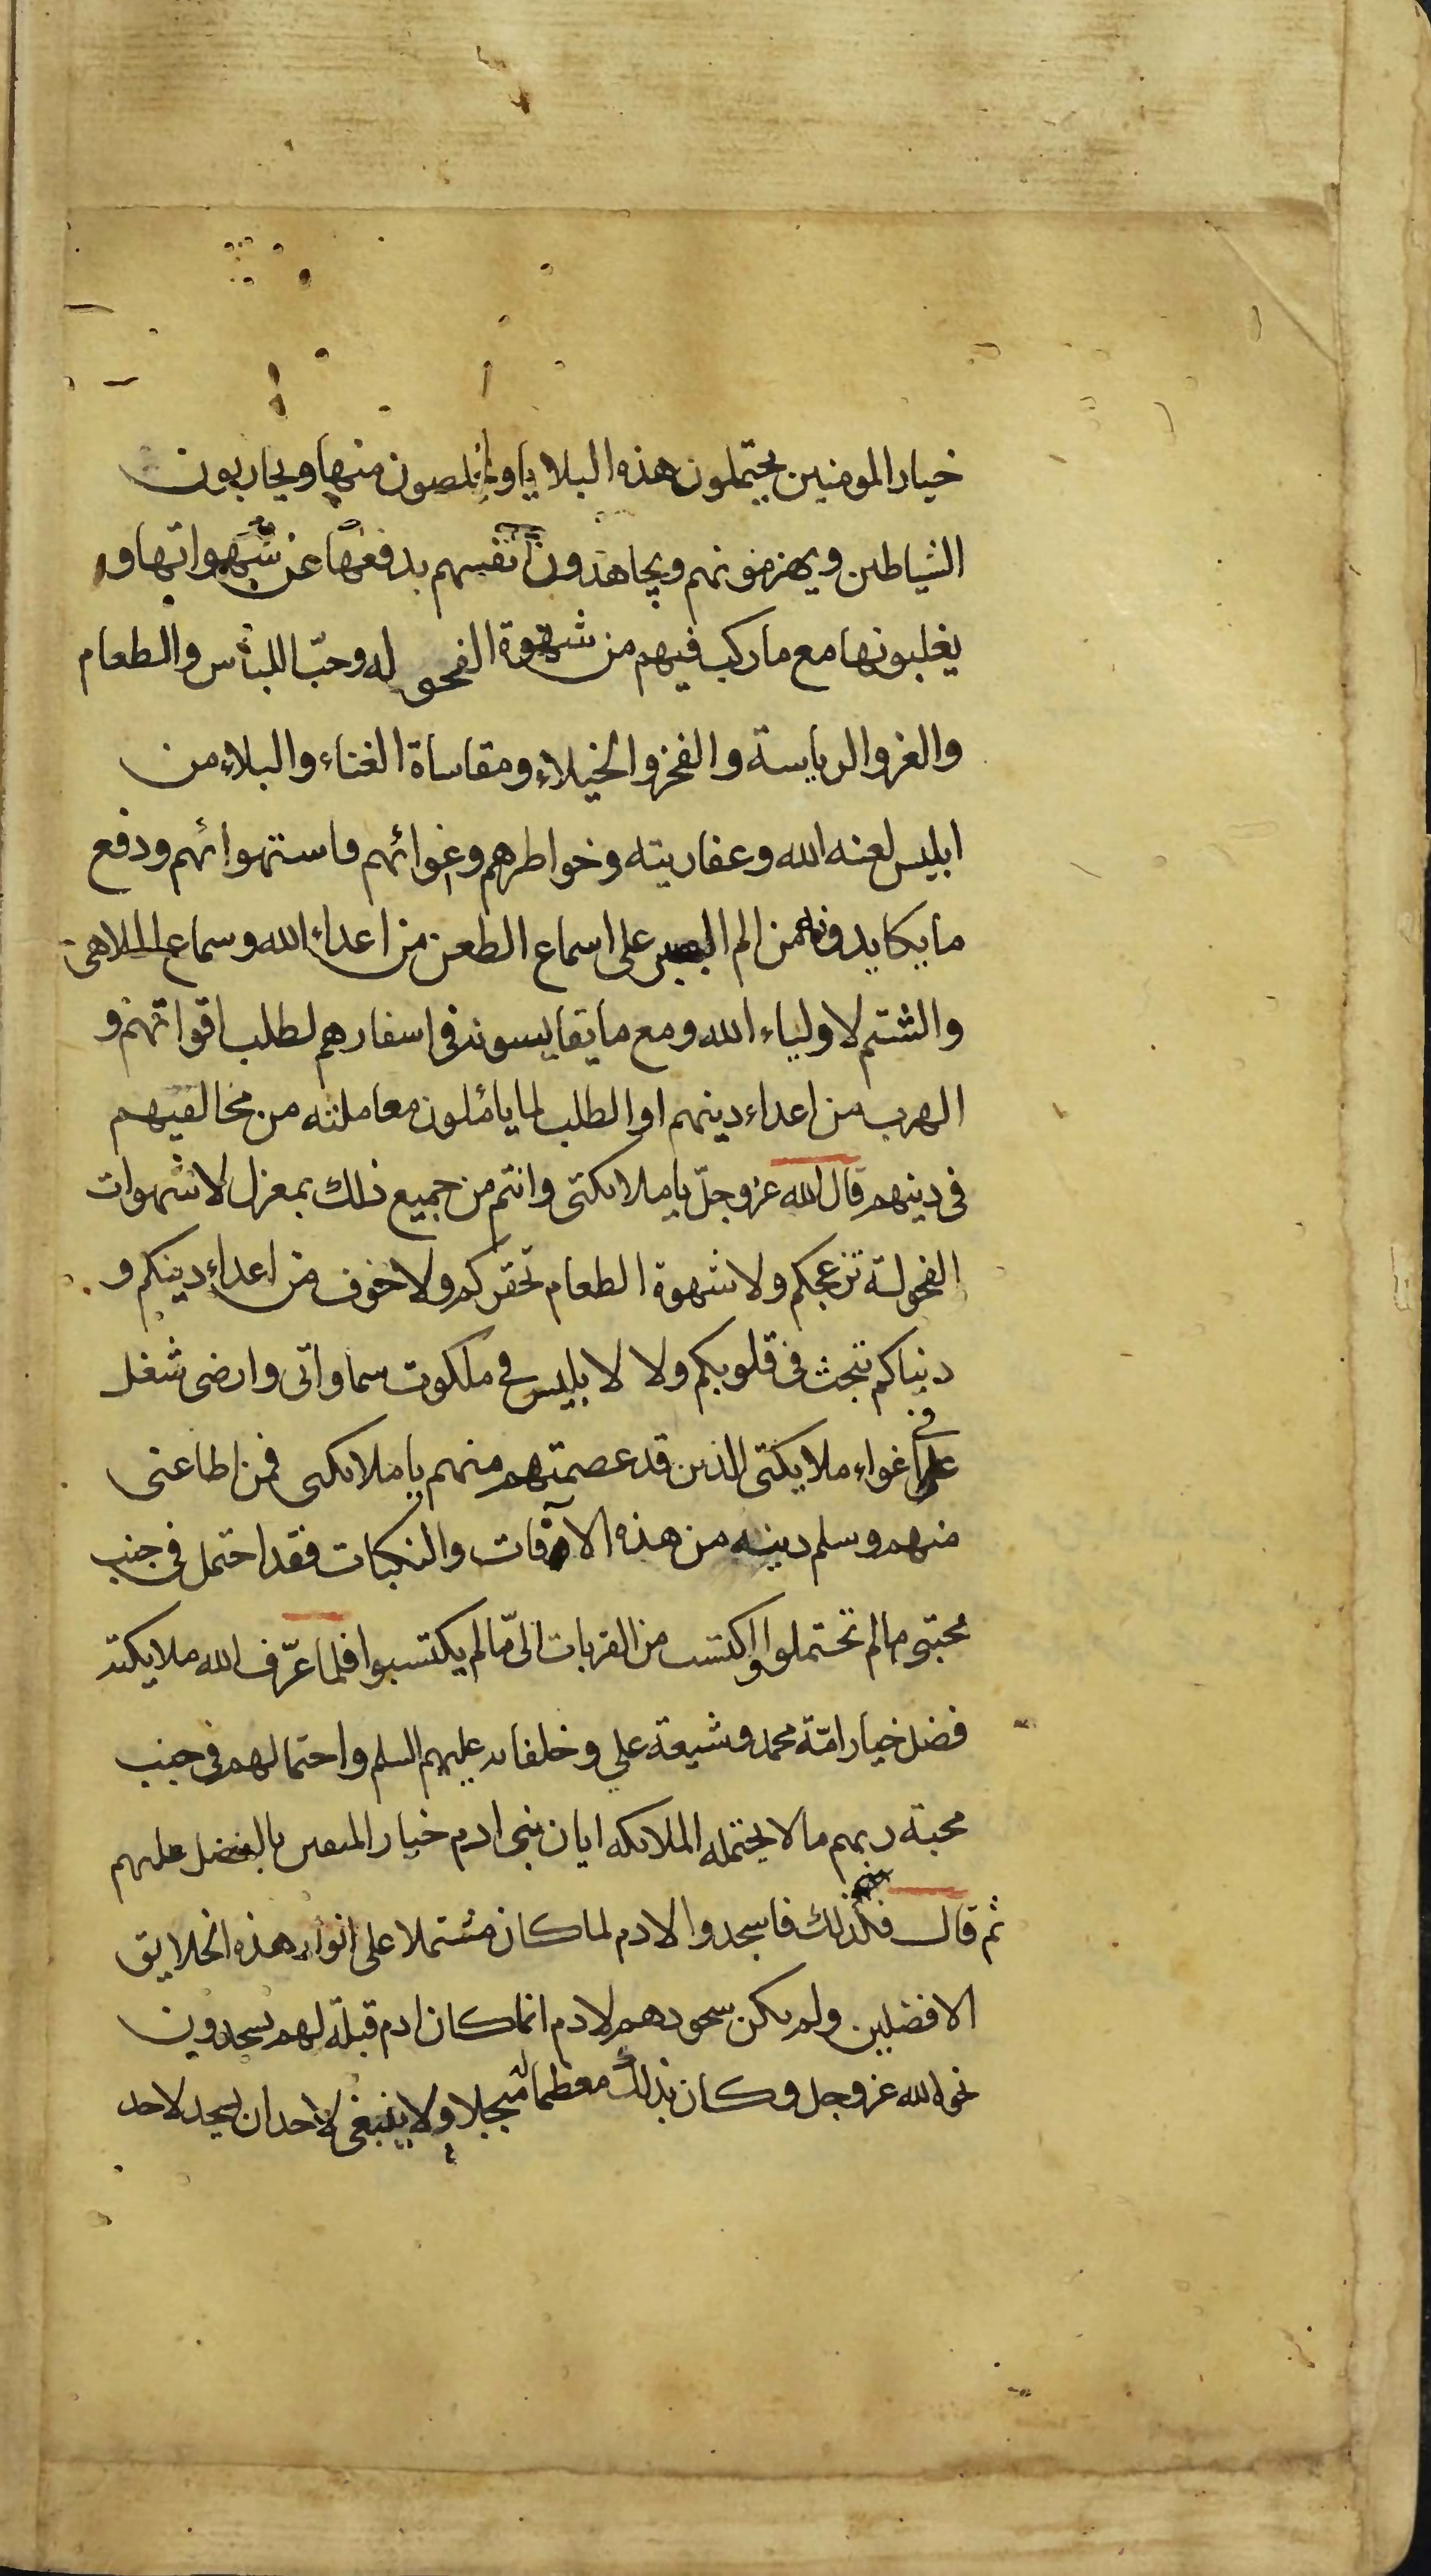 خيار المومنين يحتملون هذه البلايا ويتخلصون منها ويحاربون
الشياطين ويهزمونهم ويجاهدون انفسهم بدفعها عن شهواتها و
يغلبونها مع ماركب فيهم من شهوة الفحوله وحبّ اللباس والطعام
والعز والرياسة والفخر والخيلاء ومقاساة العناء والبلاء من
ابليس لعنه الله وعفاريته وخواطرهم وغوائهم واستهوائهم ودفع
مايكايدونه من الم الصبر على اسماع الطعن من اعداء الله وسماع الملاهى
والشتم لاولياء الله ومع مايقايسونه فى اسفارهم لطلب اقواتهم و
الهرب من اعداء دينهم او الطلب لما يائملون معاملته من مخالفيهم
فى دينهم قال الله عزوجلّ ياملائكتى وانتم من جميع ذلك بمعزل لاشهوات
الفحولة تزعجكم ولاشهوة الطعام تحقركم ولاخوف من اعداء دينكم و
دنياكم تنجث فى قلوبكم ولا لابليس فى ملكوت سماواتى وارضى شغل
على فى اغواء ملايكتى الذين قد عصمتهم منهم ياملائكتى فمن اطاعنى
منهم وسلم دينه من هذه الآفات والنكبات فقد احتمل فى جنب
محبتى مالم تحتملوا واكتسب من القربات الىّ مالم يكتسبوا فلما عرّف الله ملايكته
فضل خيار امّة محمد وشيعة علي وخلفائه عليهم السلم واحتمالهم فى جنب
محبة ربهم مالا يحتمله الملائكه ابان بنى ادم خيار المتقين بالفضل عليهم
ثم قال فلذلك فاسجدوا لادم لما كان مشتملا على انوار هذه الخلايق
الافضلين ولم يكن سجودهم لادم انما كان ادم قبلة لهم يسجدون
نحوه لله عزوجل وكان بذلك معظما له مبجلا ولا ينبغى لاحد ان يسجد لاحد